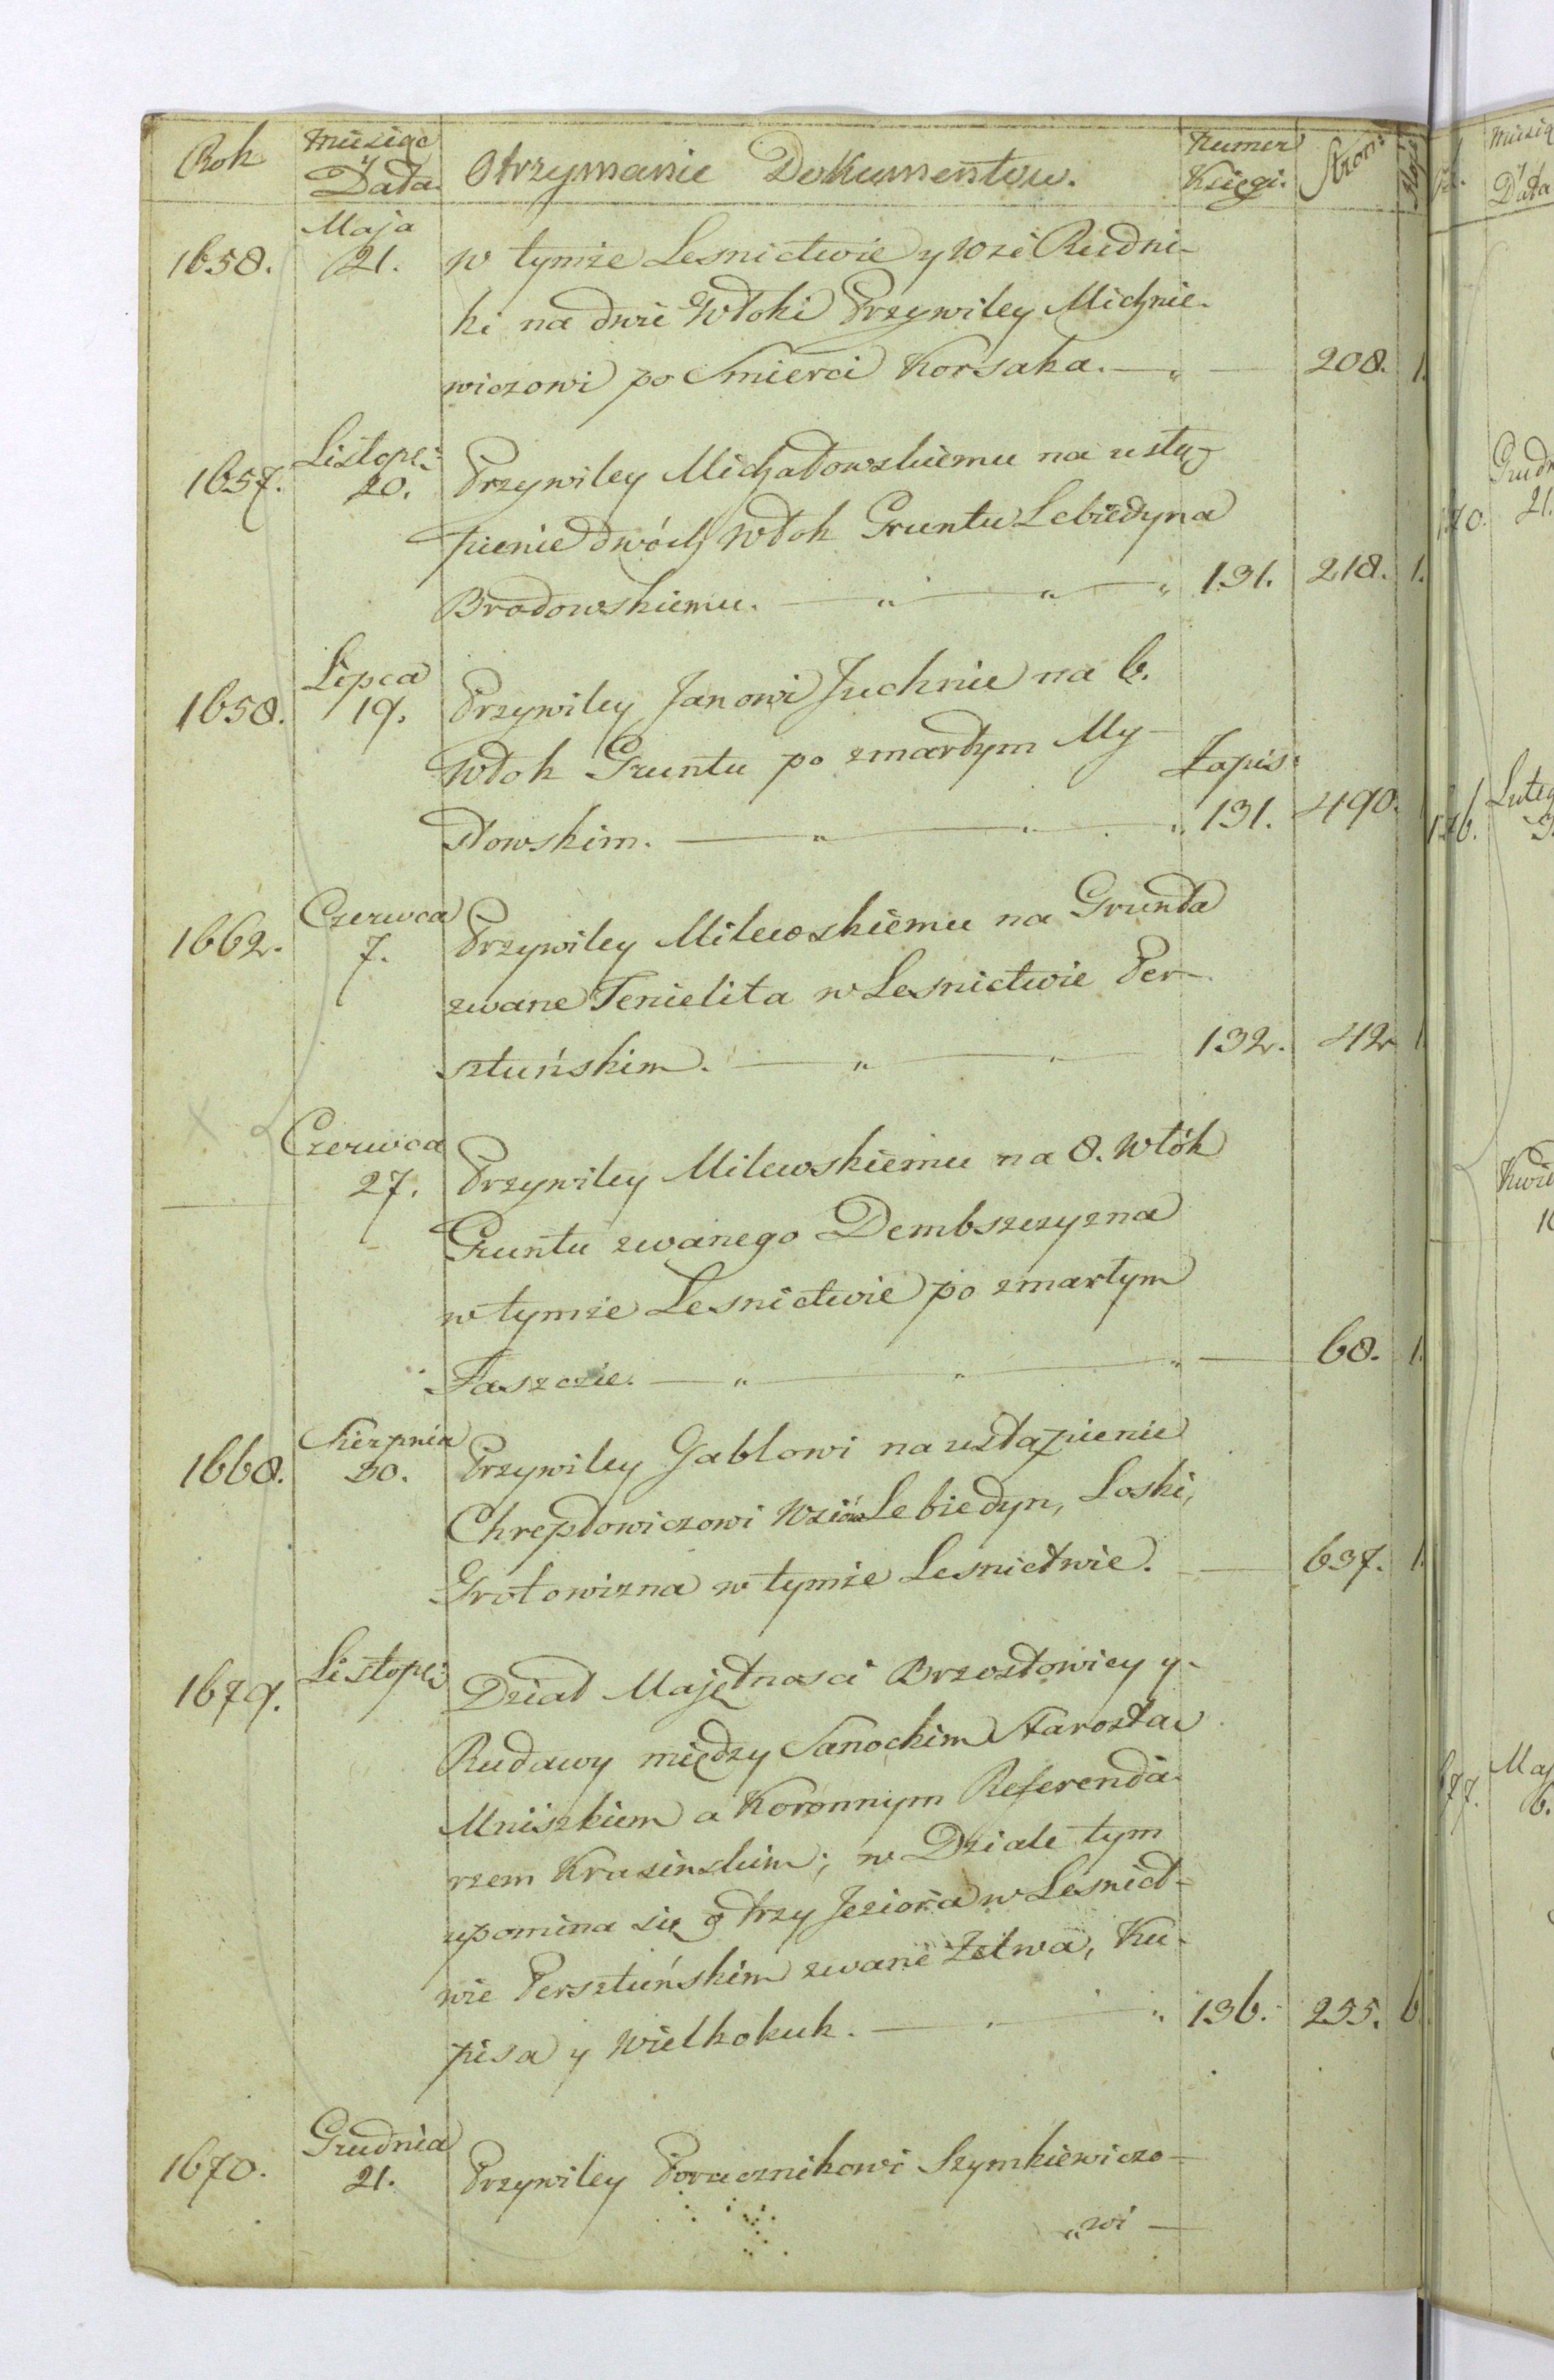 Rok Miesiąc Data Otrzymanie Dokumentow. Numer Księgi. Stron:
1658. Maja 21. w tymże Lesnictwie y Wsi Rudni-
ki na dwie Włoki Przywiley Michnie-
wiczowi po Smierci Korsaka. — 208. 1.
1657. Listop: 20. Przywiley Michałowskiemu na ustą-
pienie dwóch Włok Gruntu Lebiedyna
Brodowskiemu. — 131. 218. 1.
1658. Lipca 19. Przywiley Janowi Juchnie na 6.
Włok Gruntu po zmarłym My-
słowskim. — Zapis: 131. 490. 1
1662. Czerwca 7. Przywiley Milewskiemu na Grunta
zwane Tenielita w Lesnictwie Per-
sztuńskim. — 132. 42 1
Czerwca 27. Przywiley Milewskiemu na 8. Włók
Gruntu zwanego Dembszczyzna
w tymże Lesnictwie po zmarłym
Faszczie. — 68. 1.
1668. Sierpnia 30. Przywiley Gablowi na ustąpienie
Chreptowiczowi Wsiów Lebiedyn, Loski,
Grotowizna w tymże Lesnictwie. — 637. 1
1679. Listop: Dział Majętnosci Brzostowicy y
Rudawy między Sanockim Starostą
Mniszkiem a Koronnym Referenda-
rzem Krasinskim; w Dziale tym
upomina się o trzy Jeziora w Lesnict-
wie Persztuńskim zwane Zelwa, Ku-
pisa y Wielkokuk. — 136. 255. 6.
1670. Grudnia 21. Przywiley Porucznikowi Szymkiewiczo-
„wi —
Miesią
Data
Grudn
21.
170.
Luteg
176.
Kwie
1
Maj
6.
677.